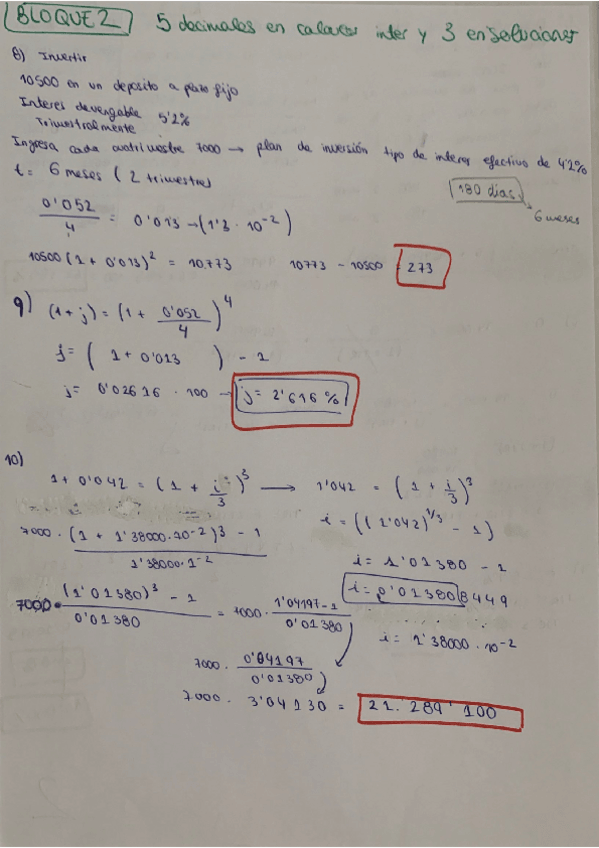 BLOQUE 2 5 decimales en calculos inter y 3 en soluciones
8) Invertir
10500 en un deposito a plazo fijo
Interes devengable 5'2%
Trimestralmente
Ingresa cada cuatrimestre 7000 → plan de inversión tipo de interes efectivo de 4'2%
t = 6 meses (2 trimestres) 180 días → 6 meses
0'052/4 = 0'013 → (1'3 · 10^-2)
10500 (1 + 0'013)^2 = 10773 10773 - 10500 = 273
9) (1 + j) = (1 + 0'052/4)^4
j = ( 1 + 0'013 ) - 1
j = 0'02616 · 100 → j = 2'616 %
10)
1 + 0'042 = (1 + i/3)^3 → 1'042 = (1 + i/3)^3
i = ((1'042)^1/3 - 1)
7000 · (1 + 1'38000·10^-2)^3 - 1 / 1'38000·1^-2
i = 1'01380 - 1
7000 · (1'01380)^3 - 1 / 0'01380 = 7000 · 1'04197-1 / 0'01380
i = 0'013808449
i = 1'38000 · 10^-2
7000 · 0'04197 / 0'01380
7000 · 3'04130 = 21.289'100